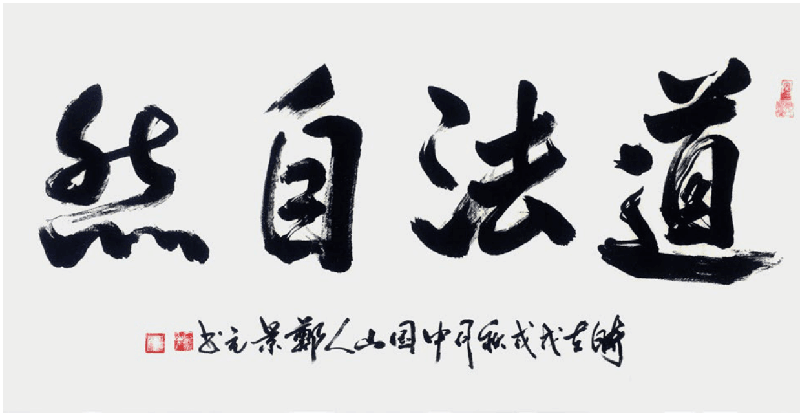 道法自然
時在戊戌秋月中国山人鄭景元书